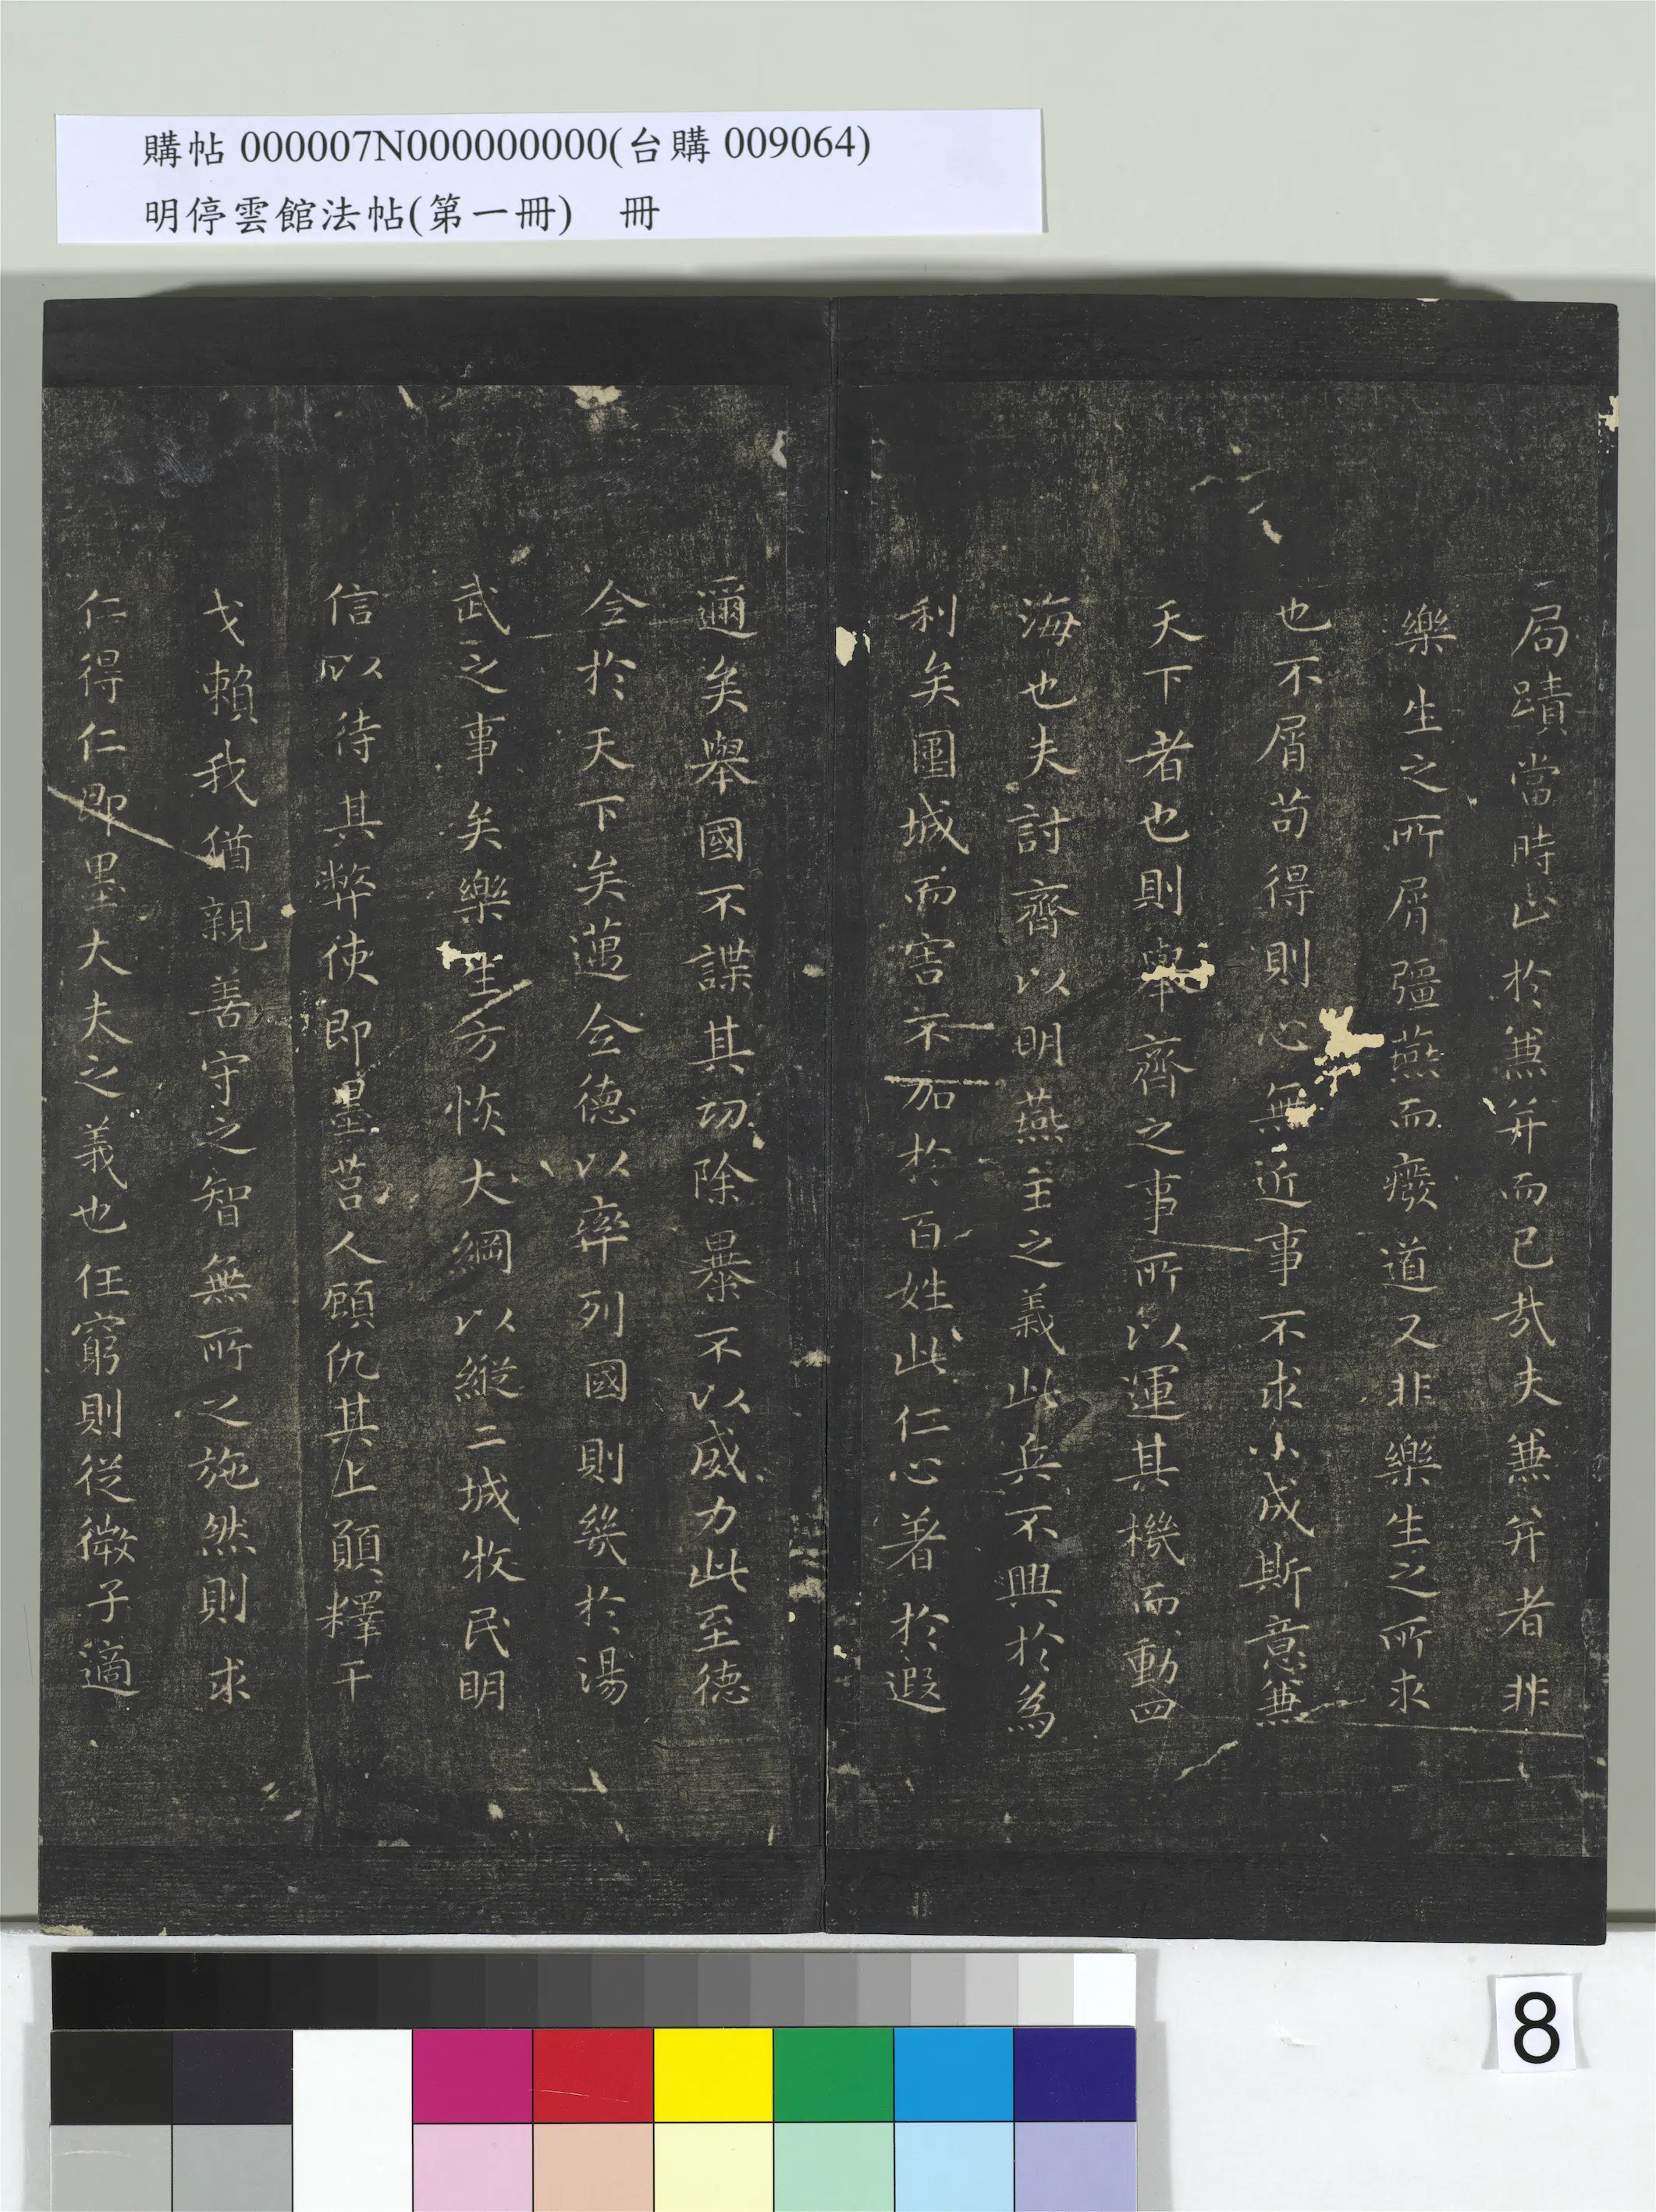 購帖 000007N000000000(台購 009064)
明停雲館法帖(第一冊) 冊
局蹟當時止於蒹并而已哉夫蒹并者非
樂生之所屑彊燕而癈道又非樂生之所求
也不屑苟得則心無近事不求小成斯意蒹
天下者也則舉齊之事所以運其機而動四
海也夫討齊以明燕主之義此兵不興於為
利矣圍城而害不加於百姓此仁心著於遐
邇矣舉國不謀其功除暴不以威力此至德
令於天下矣邁令德以率列國則幾於湯
武之事矣樂生方恢大綱以縱二城牧民明
信以待其弊使即墨莒人顧仇其上願釋干
戈賴我猶親善守之智無所之施然則求
仁得仁即墨大夫之義也任窮則從微子適
8